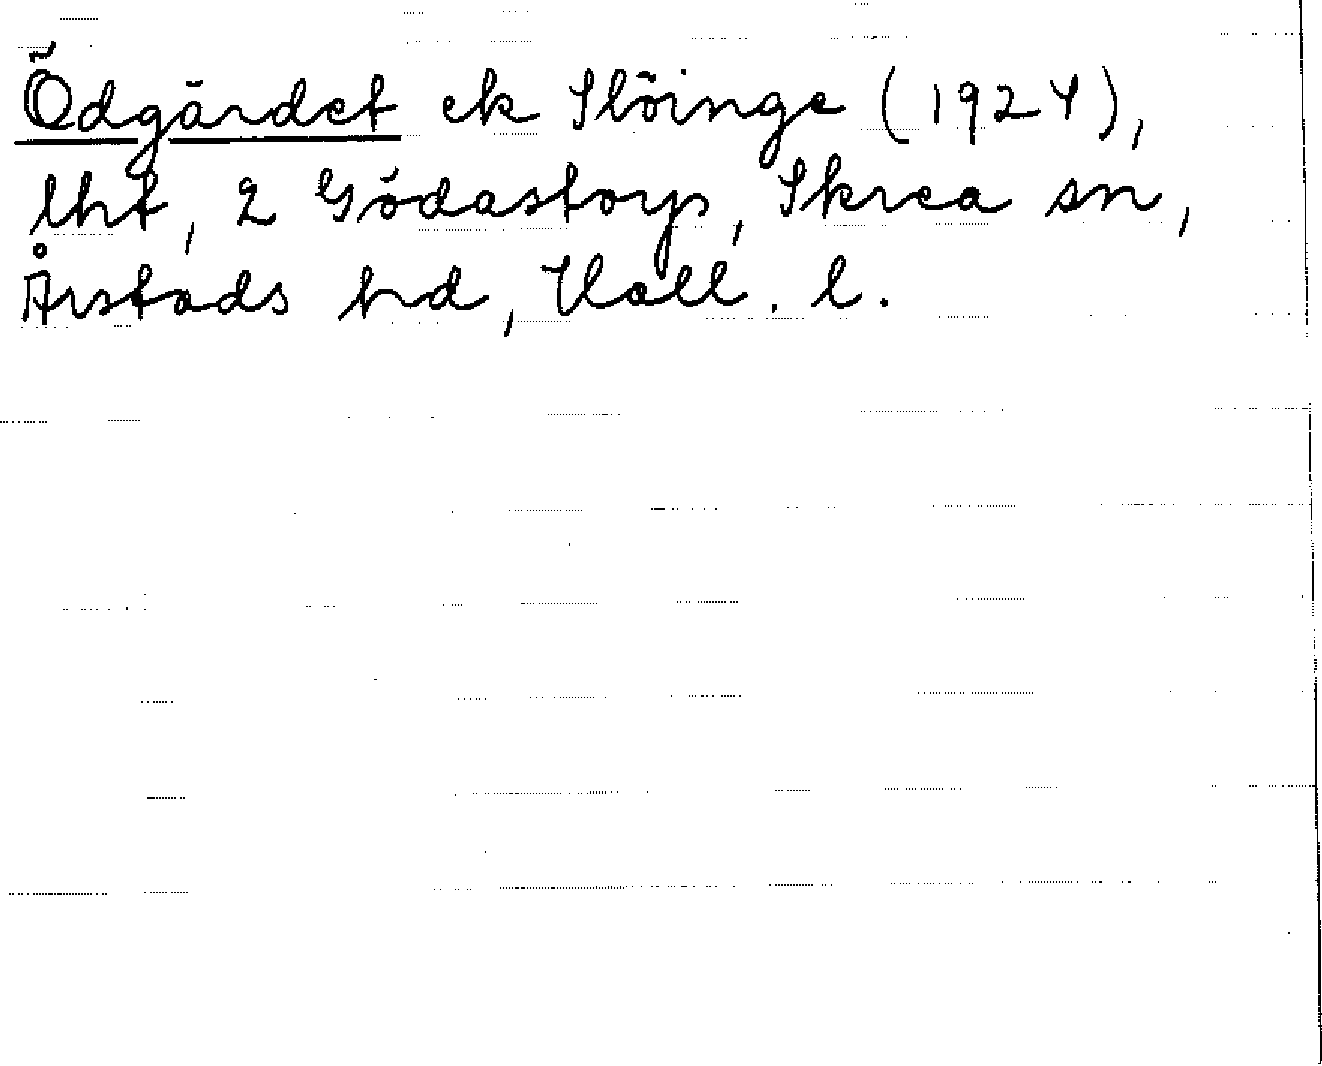 Ödgärdet ek Slöinge (1924),
lht, 2 Gödastorp, Skrea sn,
Årstads hd, Hall. l.